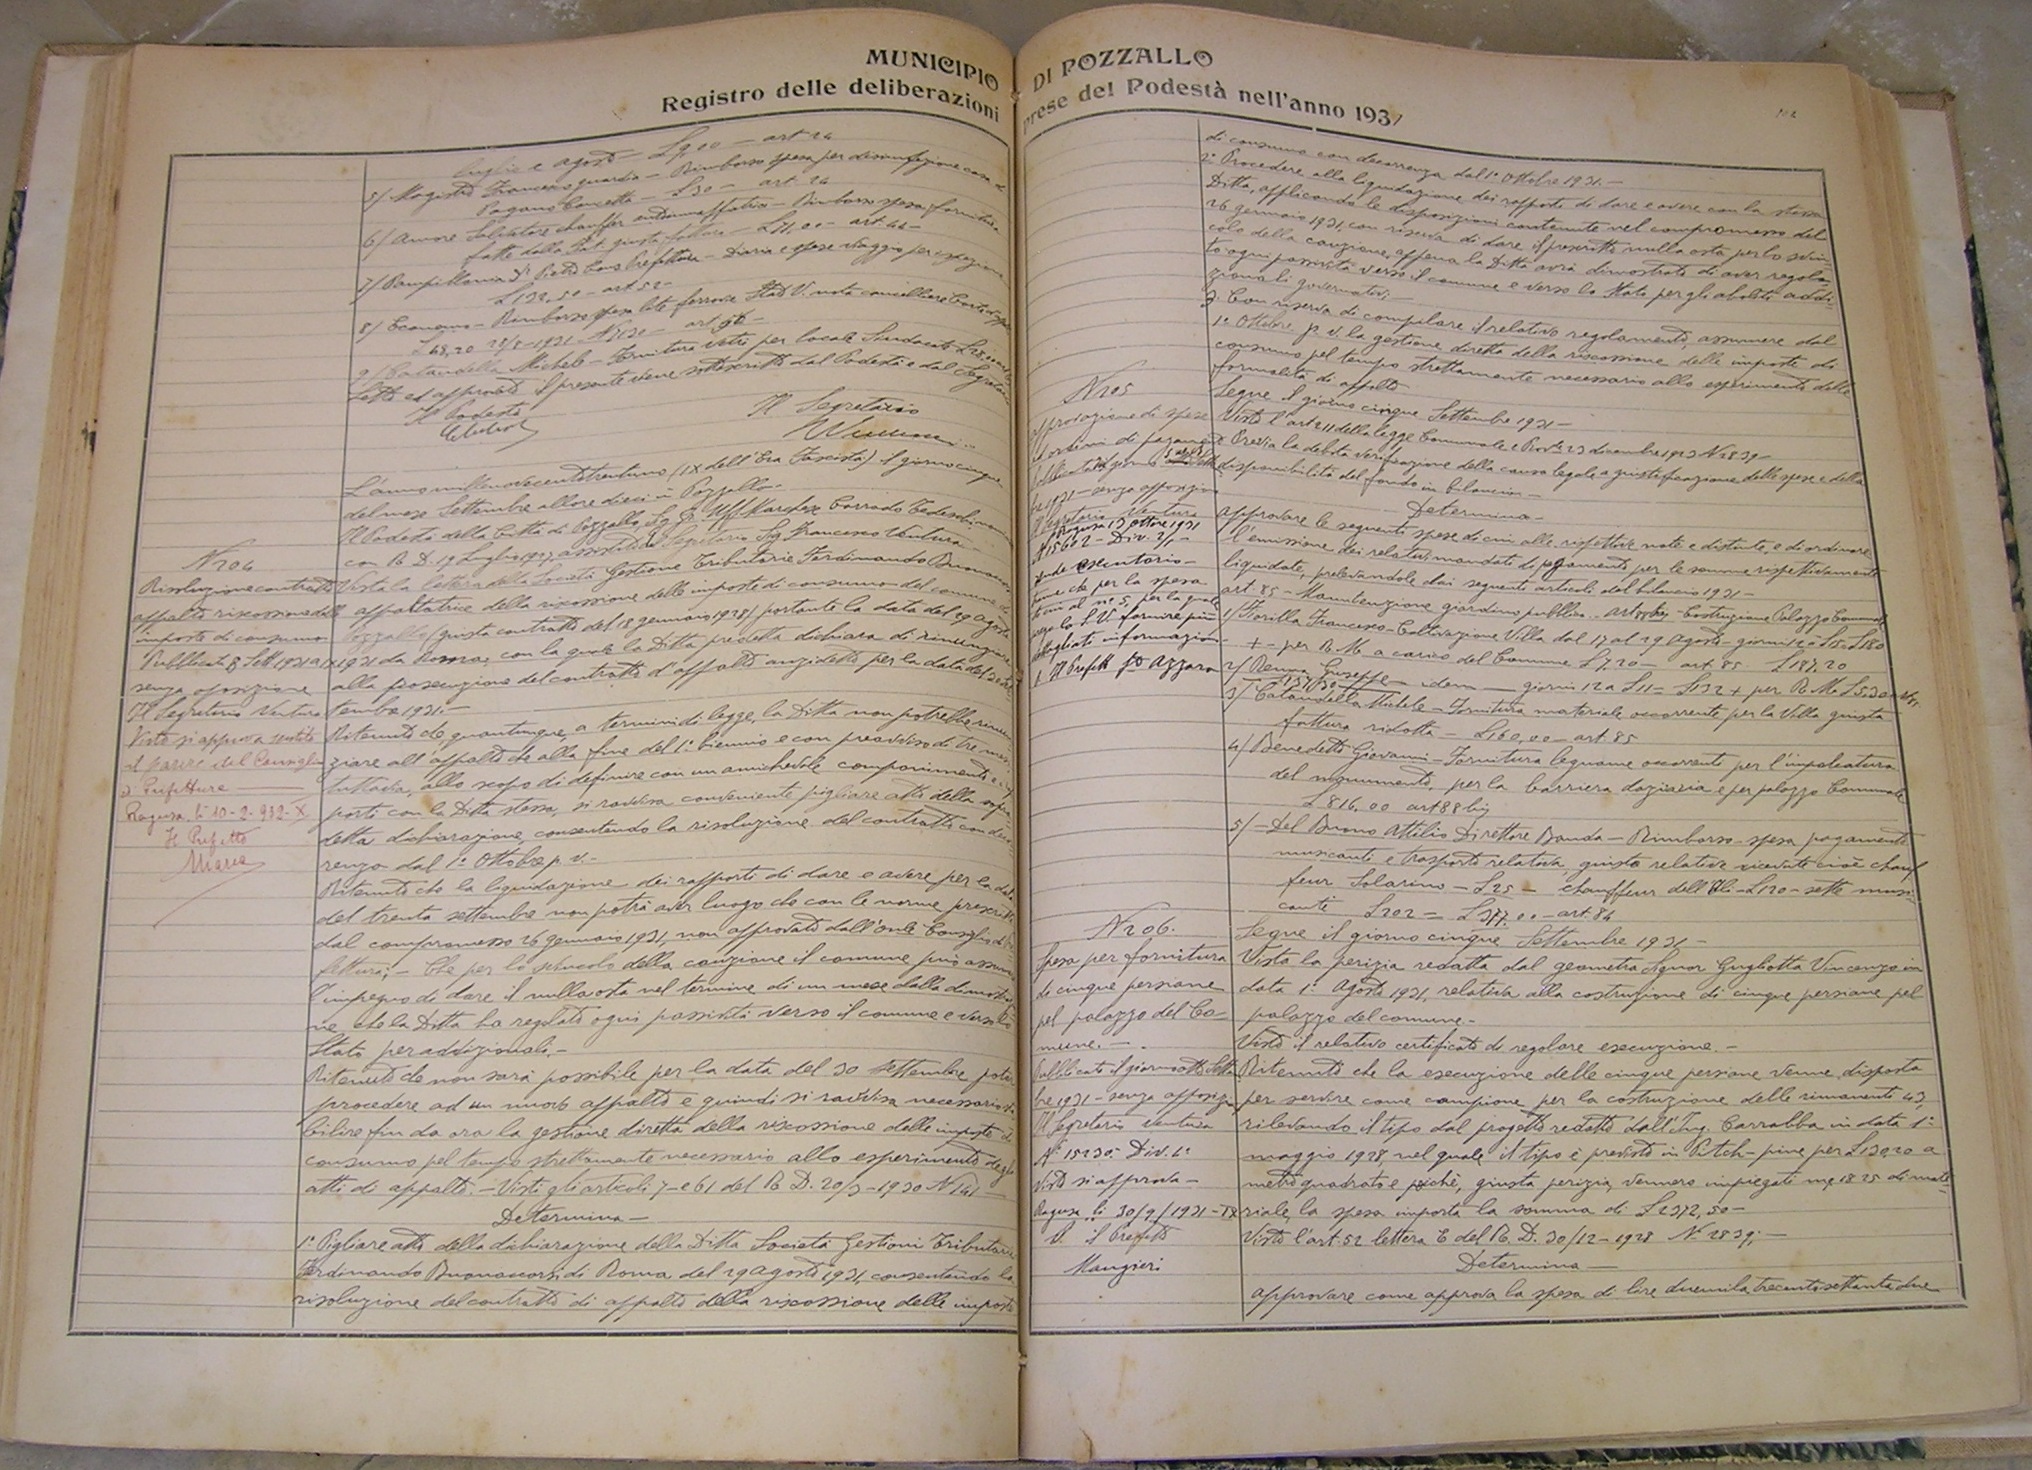 MUNICIPIO DI POZZALLO
Registro delle deliberazioni prese del Podestà nell'anno 1931
luglio e agosto — L 9,00 — art 24
5/ Magistro Francesco guardia — Rimborso spesa per disinfezione casa
Pagano Concetta — L 30 — art. 24
6/ Amore Salvatore chauffer — Rimborso spesa fornitura
fatte dalla giusta fattura — L 71,00 — art. 44 —
7/ Pampillonia Dr Pietro Cons Prefettura — Diaria e spese viaggio per ispezione
L 132,50 — art. 52 —
8/ Economo — Rimborso spesa ferrovie Stato V. nota cancelliere
L 48,20 28/8-1931 N 7130 — art.
9/ Cataudella Michele — Fornitura vetri per locale Sindacato
Letto ed approvato il presente viene sottoscritto dal Podestà e dal Segretario
Il Podestà
Il Segretario
L'anno millenovecentotrentuno (IX dell'Era Fascista) il giorno cinque
del mese Settembre alle ore dieci in Pozzallo —
Il Podestà della Città di Pozzallo, Sig. Gr. Uff. Marchese Corrado Tedeschi
con R D. 19 Luglio 1927, assistito dal Segretario Sig. Francesco Ventura —
N 204
Risoluzione contratto
appalto riscossione delle
imposte di consumo
Pubblicata 8 Sett 1931 a IX
senza opposizione
Il Segretario Ventura
Visto si approva sentito
il parere del Consiglio
di Prefettura
Ragusa, li 10-2-932-X
Il Prefetto
Vista la lettera della Società Gestione Tributarie Ferdinando Buonaccorsi
appaltatrice della riscossione delle imposte di consumo del comune di
Pozzallo (giusta contratto del 18 gennaio 1928) portante la data del 29 agosto
1931 da Roma, con la quale la Ditta predetta dichiara di rinunziare
alla prosecuzione del contratto d'appalto anzidetto per la data del 30 set
tembre 1931. —
Ritenuto che, quantunque, a termini di legge, la Ditta non potrebbe rinun
ziare all'appalto che alla fine del 1° biennio e con preavviso di tre mesi
tuttavia, allo scopo di definire con un amichevole componimento i rap
porti con la Ditta stessa, si ravvisa conveniente pigliare atto della sopra
detta dichiarazione, consentendo la risoluzione del contratto con decor
renza dal 1° Ottobre p. v. —
Ritenuto che la liquidazione dei rapporti di dare e avere per la data
del trenta settembre non potrà aver luogo che con le norme prescritte
dal compromesso 26 gennaio 1931, non approvato dall'On.le Consiglio di Pre
fettura; — Che per lo svincolo della cauzione il comune può assumere
l'impegno di dare il nullaosta nel termine di un mese dalla dimostrazio
ne che la Ditta ha regolato ogni passività verso il comune e verso lo
Stato per addizionali. —
Ritenuto che non sarà possibile per la data del 30 settembre poter
procedere ad un nuovo appalto e quindi si ravvisa necessario sta
bilire fin da ora la gestione diretta della riscossione delle imposte di
consumo pel tempo strettamente necessario allo esperimento degli
atti di appalto. — Visti gli articoli 7 — e 61 del R D. 20/3-1930 N 141 —
Determina —
1° Pigliare atto della dichiarazione della Ditta Società Gestioni Tributarie
Ferdinando Buonaccorsi, di Roma del 29 agosto 1931, consentendo la
risoluzione del contratto di appalto della riscossione delle imposte
102
di consumo con decorrenza dal 1° Ottobre 1931. —
2° Procedere alla liquidazione dei rapporti di dare e avere con la stessa
Ditta, applicando le disposizioni contenute nel compromesso del
26 gennaio 1931, con riserva di dare il prescritto nulla osta per lo svin-
colo della cauzione, appena la Ditta avrà dimostrato di aver regola-
to ogni passività verso il comune e verso lo Stato per gli aboliti addi-
zionali governativi. —
3° Con riserva di compilare il relativo regolamento, assumere dal
1° Ottobre p. v. la gestione diretta della riscossione delle imposte di
consumo pel tempo strettamente necessario allo esperimento delle
formalità di appalto
N 205
Approvazione di spese
e ordini di pagamento
Pubblicata il giorno
bre 1931 — senza opposizione
Il Segretario Ventura
Ragusa 13 Ottobre 1931
N 15602 — Div. 2/a —
rende esecutorio —
tranne che per la spesa
di cui al n° 5, per la quale
prego la S. V. fornire più
dettagliate informazioni
p. Il Prefetto fo Azzaro
Segue il giorno cinque Settembre 1931 —
Visto l'art 211 della legge Comunale e Prov. 23 dicembre 1923 N 2839 —
Previa la debita verificazione della causa legale a giustificazione delle spese e della
disponibilità del fondo in bilancio —
Determina —
approvare le seguenti spese di cui alle rispettive note e distinte, e di ordinare
l'emissione dei relativi mandati di pagamento per le somme rispettivamente
liquidate, prelevandole dai seguenti articoli del bilancio 1931 —
art. 85 — Manutenzione giardino pubblico — art 88 bis — Costruzione Palazzo Comunale
1/ Fiorilla Francesco — Coltivazione Villa dal 17 al 29 agosto — giorni 12 a L 15 = L 180
+ — per R M a carico del Comune L 7,20 — art 85 L 187,20
2/ Renna Giuseppe — idem — giorni 12 a L 11 = L 132 + per R. M. L 5,30
L 137,30
3/ Cataudella Michele — Fornitura materiale occorrente per la Villa giusta
fattura ridotta — L 160,00 — art. 85
4/ Benedetto Giovanni — Fornitura legname occorrente per l'impalcatura
del monumento, per la barriera daziaria e per palazzo Comunale
L 816.00 art 88 bis
5/ — Del Buono Attilio Direttore Banda — Rimborso spesa pagamento
musicanti e trasporto relativa, giusta relative ricevute cioè chauf
feur Solarino — L 25 — chauffeur dell'Ali — L 120 — sette musi-
canti L 202 = L 377.00 — art. 84
N 206.
Spesa per fornitura
di cinque persiane
pel palazzo del Co-
mune. —
Pubblicata il giorno otto Settem
bre 1931 — senza opposizione
Il Segretario Ventura
N° 15230 — Div. 2a
Visto si approva —
Ragusa li 30/9/1931 — IX
p. il Prefetto
Mangieri
Segue il giorno cinque Settembre 1931 —
Vista la perizia redatta dal geometra Signor Gugliotta Vincenzo in
data 1° Agosto 1931, relativa alla costruzione di cinque persiane pel
palazzo del comune. —
Visto il relativo certificato di regolare esecuzione. —
Ritenuto che la esecuzione delle cinque persiane venne disposta
per servire come campione per la costruzione delle rimanenti 43,
rilevando il tipo dal progetto redatto dall'Ing. Carrabba in data 1°
maggio 1928, nel quale il tipo è previsto in Pitch-pine per L 130,20 a
metro quadrato e poichè, giusta perizia, vennero impiegati mq 18 25 di mate-
riale, la spesa importa la somma di L 2372,50 —
Visto l'art. 52 lettera E del R. D. 30/12 — 1923 N° 2839; —
Determina —
approvare come approva la spesa di lire duemila trecentosettantadue